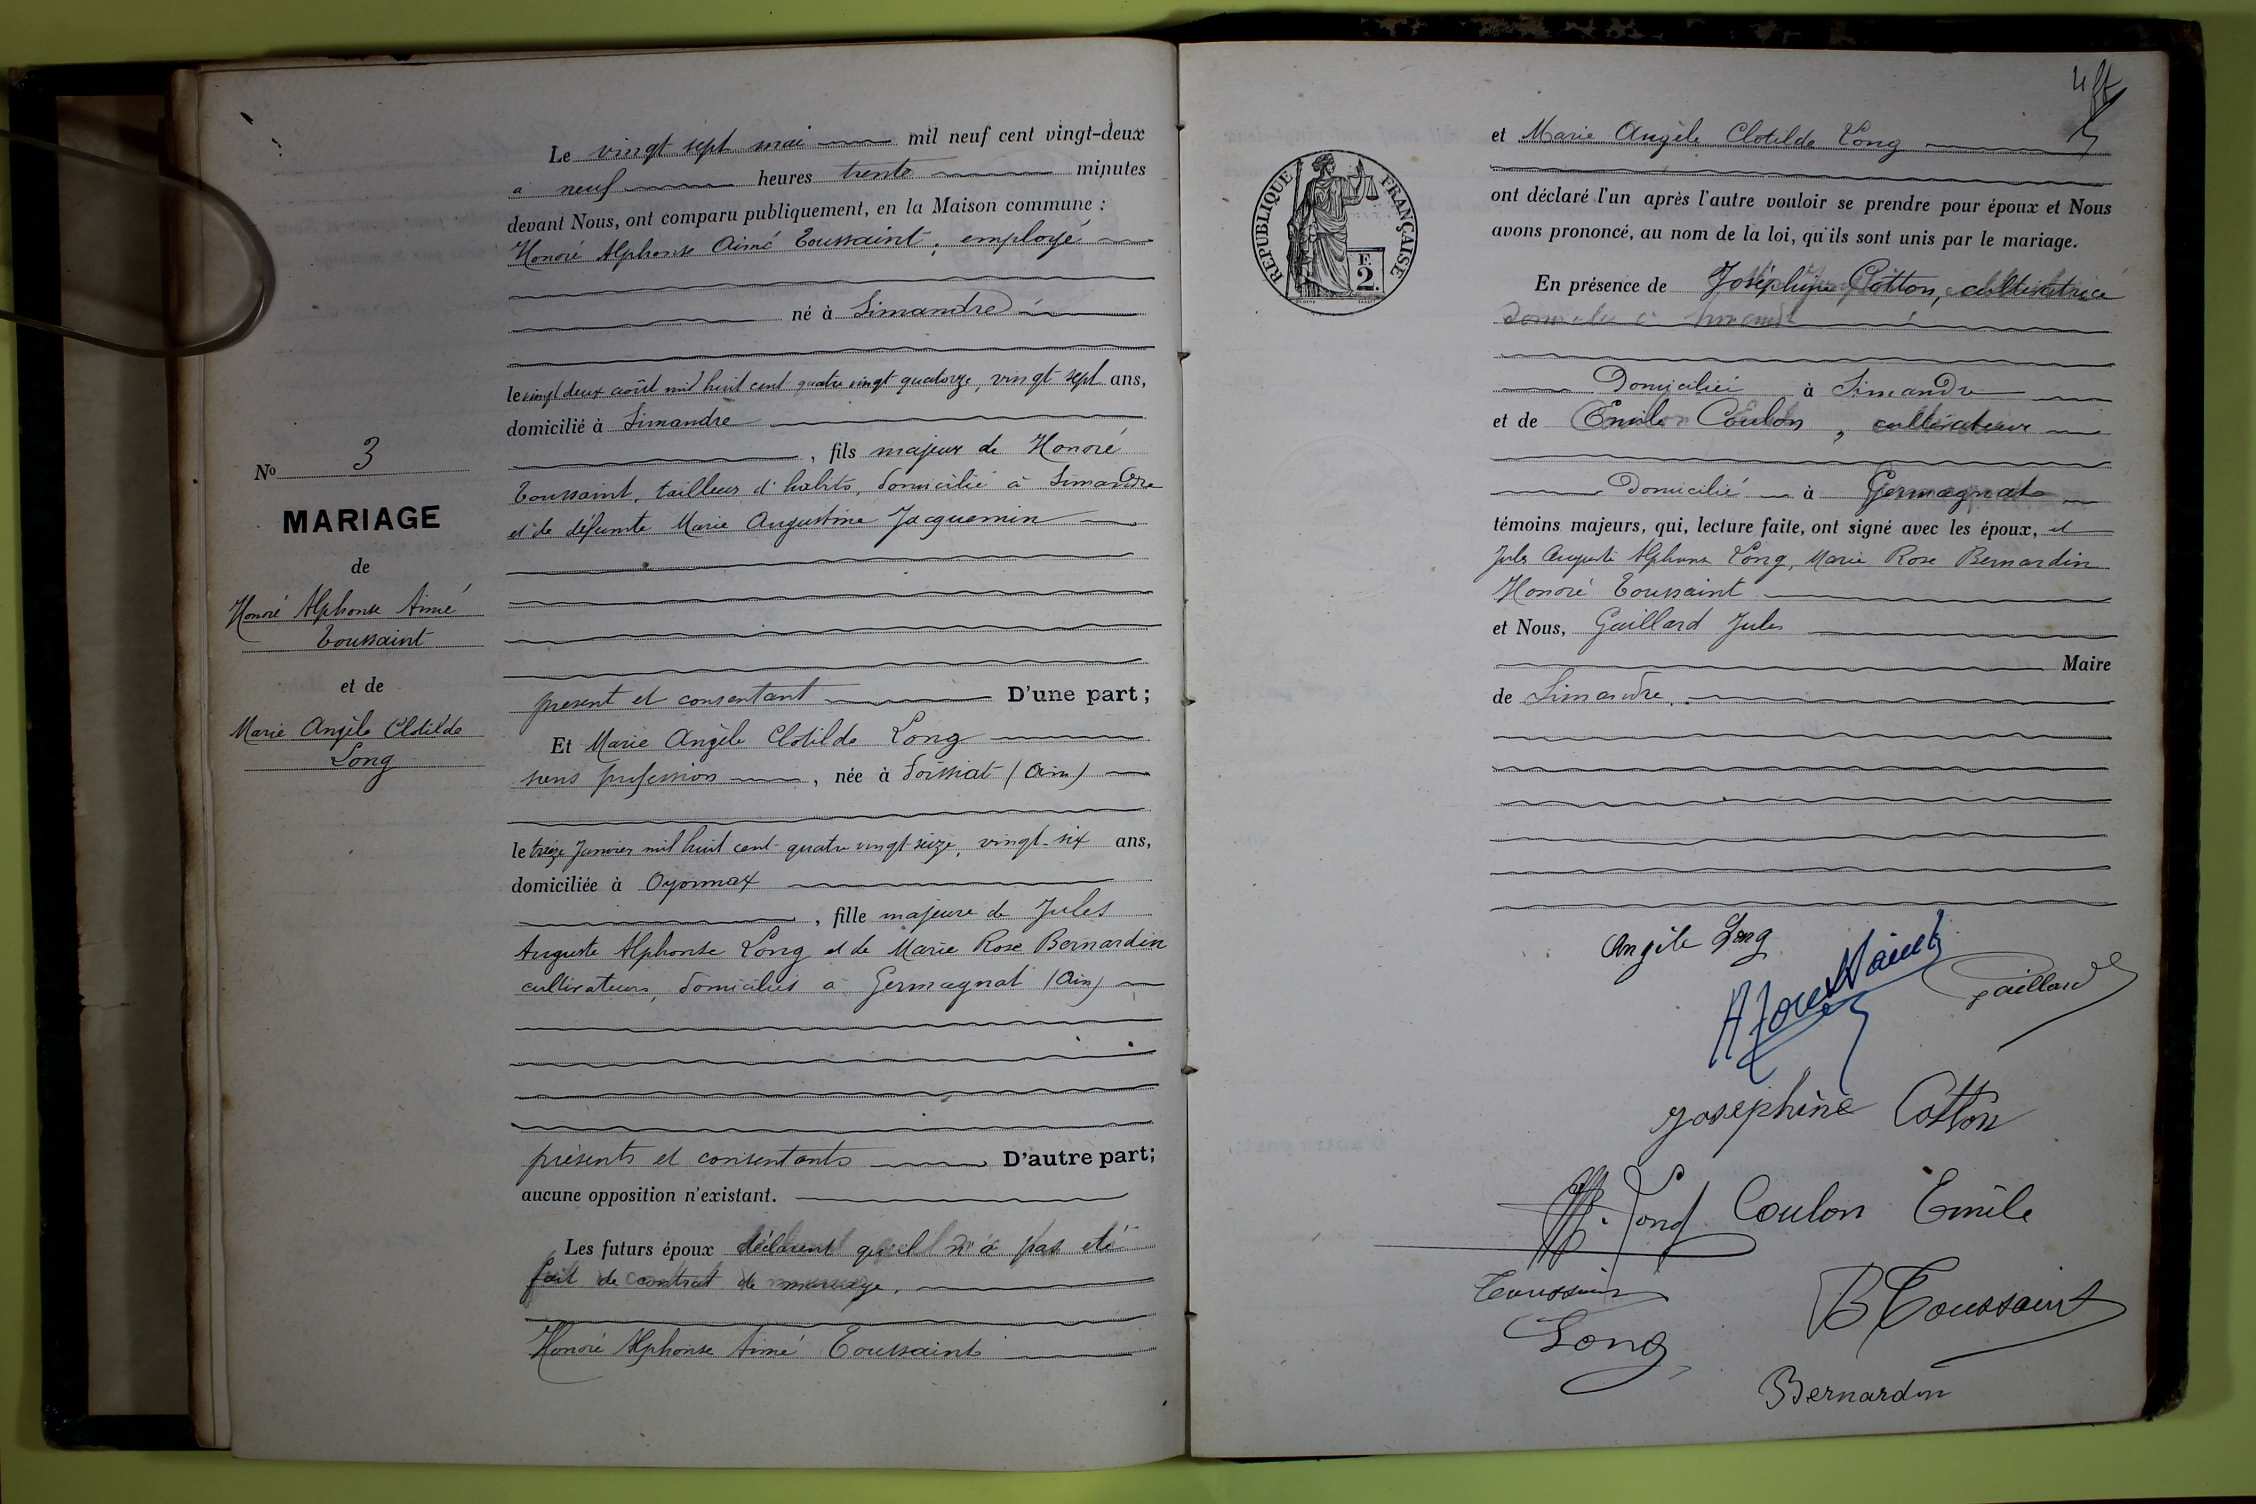 Nº 3
MARIAGE
de
Honoré Alphonse Aimé
Toussaint
et de
Marie Angèle Clotilde
Long
Le vingt sept mai mil neuf cent vingt-deux
à neuf heures trente minutes
devant Nous, ont comparu publiquement, en la Maison commune :
Honoré Alphonse Aimé Toussaint, employé
né à Simandre
le vingt deux août mil huit cent quatre vingt quatorze, vingt sept ans,
domicilié à Simandre
, fils majeur de Honoré
Toussaint, tailleur d'habits, domicilié à Simandre
et de défunte Marie Augustine Jacquemin
présent et consentant D'une part ;
Et Marie Angèle Clotilde Long
sans profession , née à Doissiat (Ain)
le treize Janvier mil huit cent quatre vingt seize, vingt-six ans,
domiciliée à Oyonnax
, fille majeure de Jules
Auguste Alphonse Long et de Marie Rose Bernardin
cultivateurs, domiciliés à Germagnat (Ain)
présents et consentants D'autre part;
aucune opposition n'existant.
Les futurs époux déclarent qu'il n'a pas été
fait de contrat de mariage.
Honoré Alphonse Aimé Toussaint
4
RÉPUBLIQUE FRANÇAISE
F.
2.
et Marie Angèle Clotilde Long
ont déclaré l'un après l'autre vouloir se prendre pour époux et Nous
avons prononcé, au nom de la loi, qu'ils sont unis par le mariage.
En présence de Joséphine Cotton, cultivatrice
Domiciliée à Simandre
et de Emile Coulon, cultivateur
Domicilié à Germagnat
témoins majeurs, qui, lecture faite, ont signé avec les époux, et
Jules Auguste Alphonse Long, Marie Rose Bernardin
Honoré Toussaint
et Nous, Gaillard Jules
Maire
de Simandre.
Angèle Long
A Toussaint
Gaillard
Josephine Cotton
Coulon Emile
Toussaint
B Toussaint
Long
Bernardin